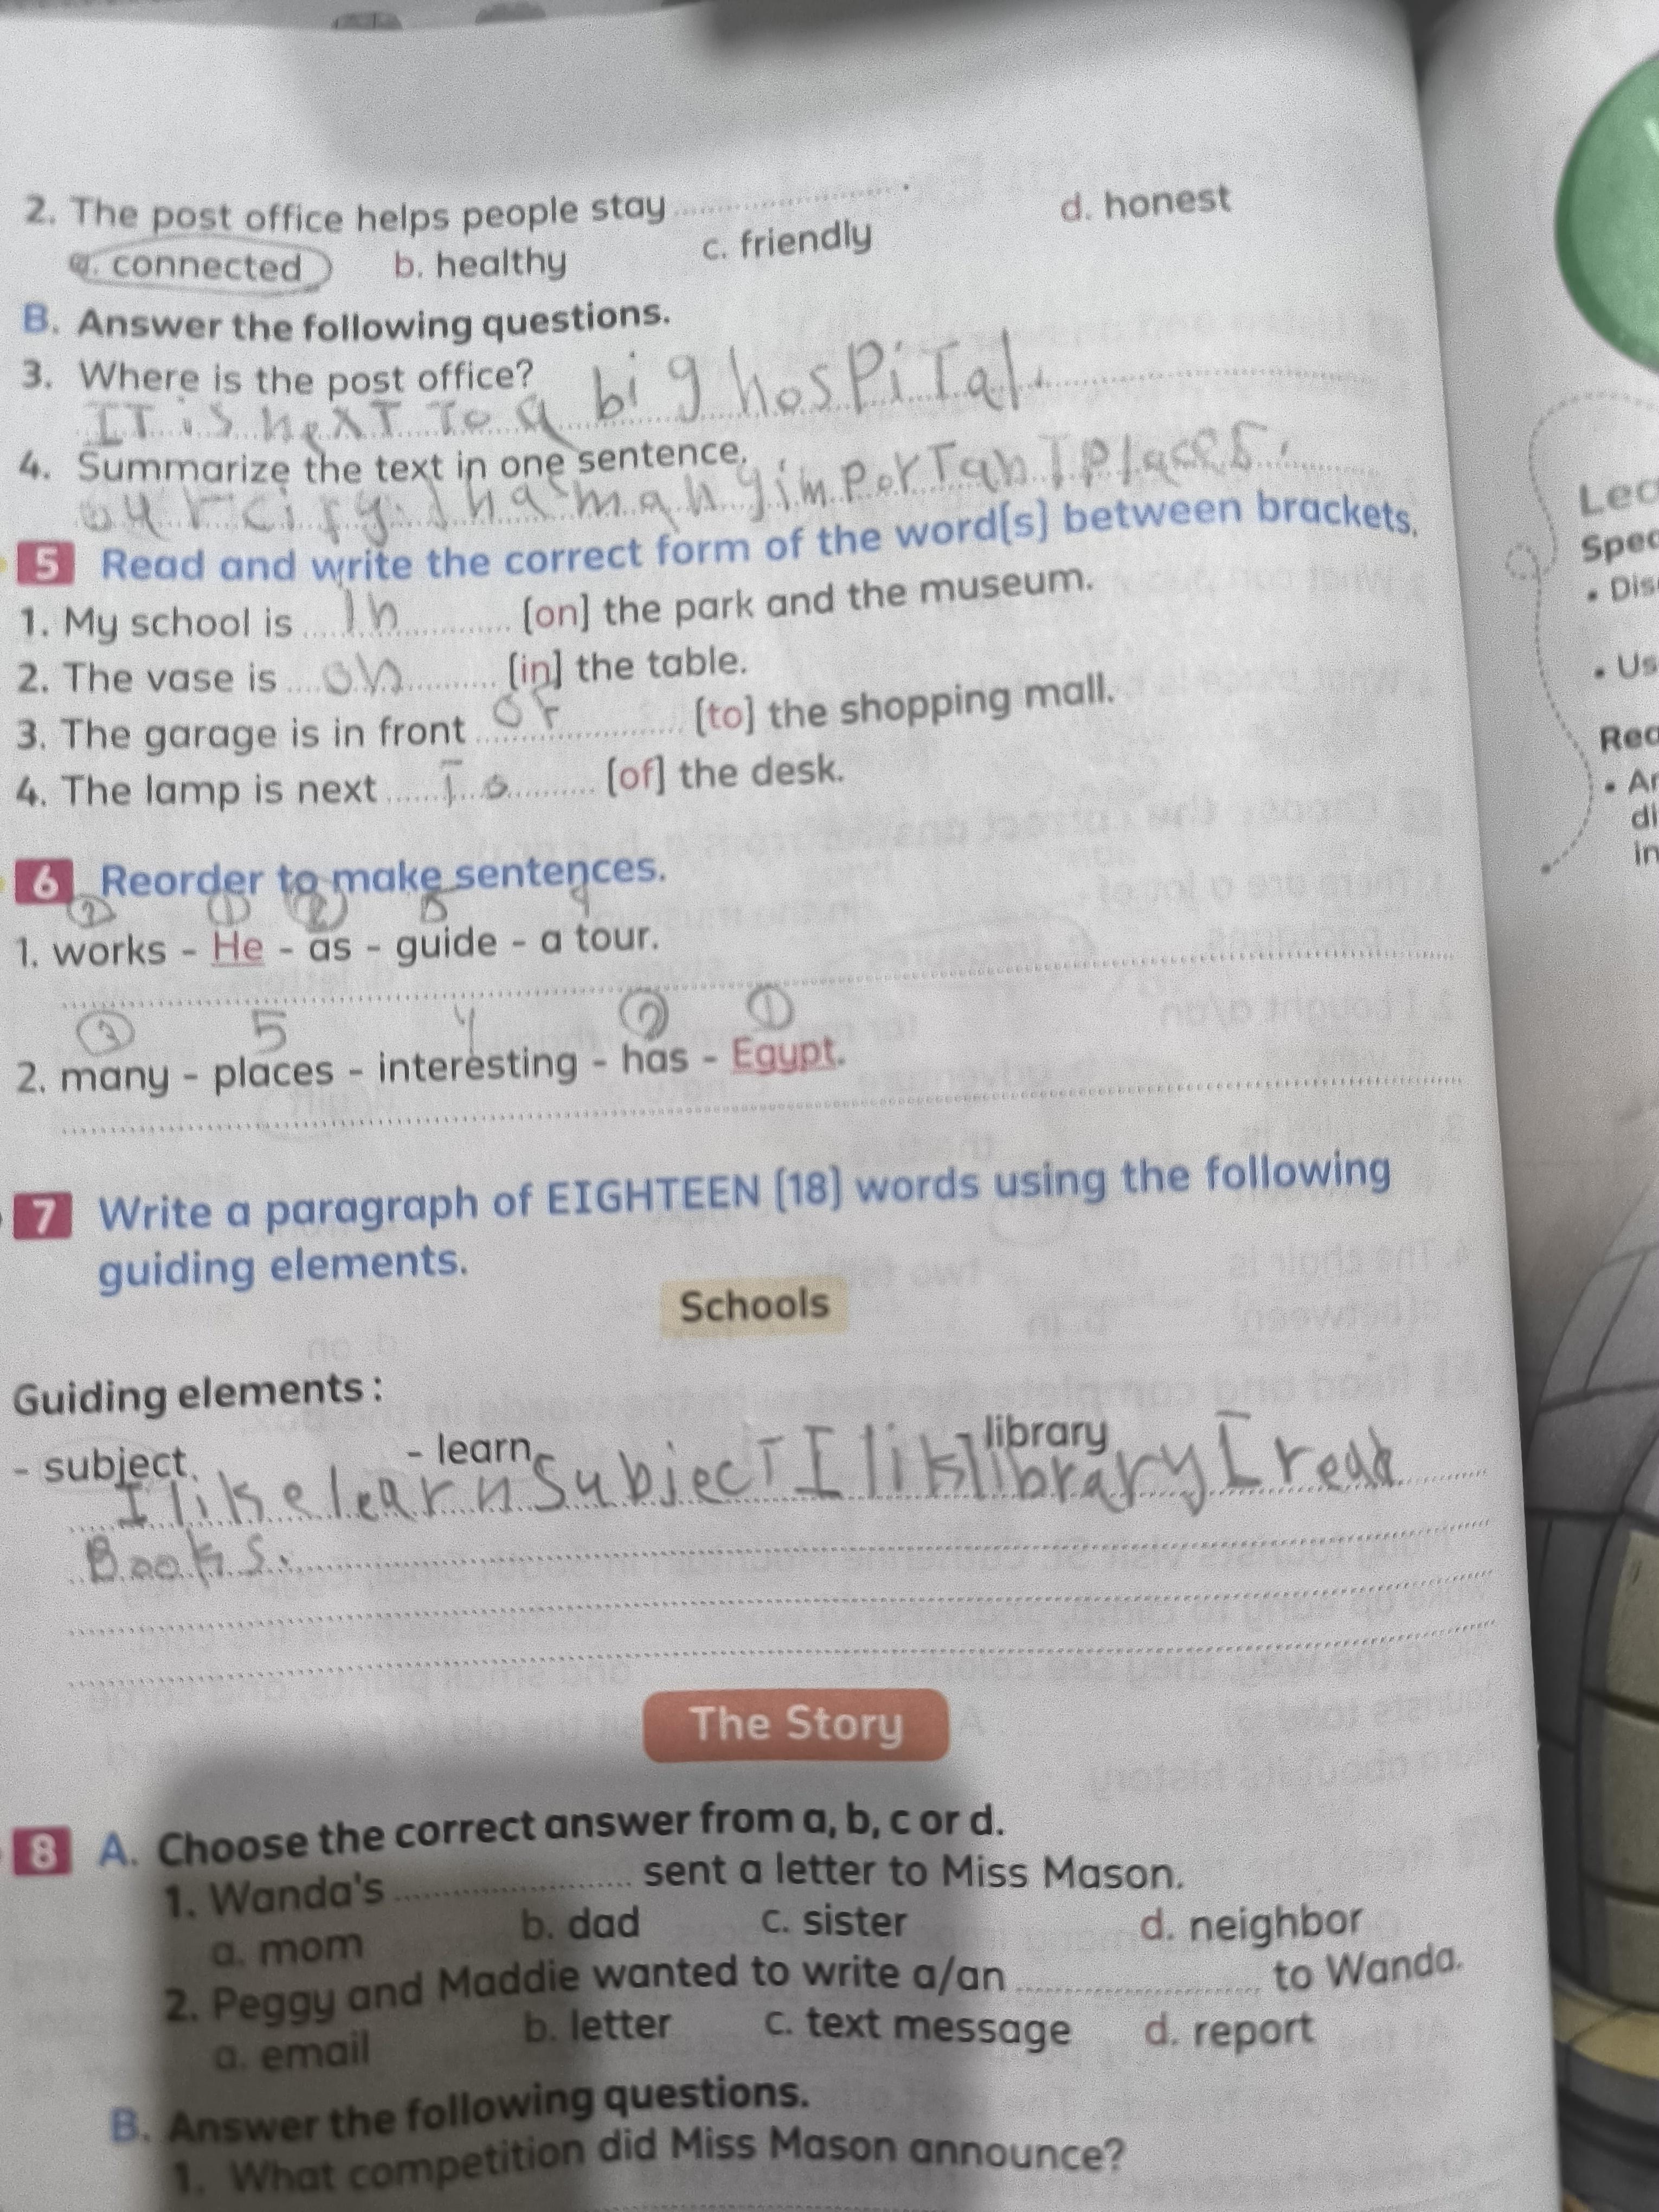 2. The post office helps people stay .
a. connected b. healthy c. friendly d. honest
B. Answer the following questions.
3. Where is the post office?
IT is next To a big hospital.
4. Summarize the text in one sentence.
important places.
5 Read and write the correct form of the word(s) between brackets.
1. My school is In [on] the park and the museum.
2. The vase is on [in] the table.
3. The garage is in front of [to] the shopping mall.
4. The lamp is next To [of] the desk.
6 Reorder to make sentences.
1 5
1. works - He - as - guide - a tour.
3 5 4 2 1
2. many - places - interesting - has - Egypt.
7 Write a paragraph of EIGHTEEN (18) words using the following
guiding elements.
Schools
Guiding elements :
- subject - learn library
I like learn subject I lik library I read
Books.
The Story
8 A. Choose the correct answer from a, b, c or d.
1. Wanda's sent a letter to Miss Mason.
a. mom b. dad c. sister d. neighbor
2. Peggy and Maddie wanted to write a/an to Wanda.
a. email b. letter c. text message d. report
B. Answer the following questions.
1. What competition did Miss Mason announce?